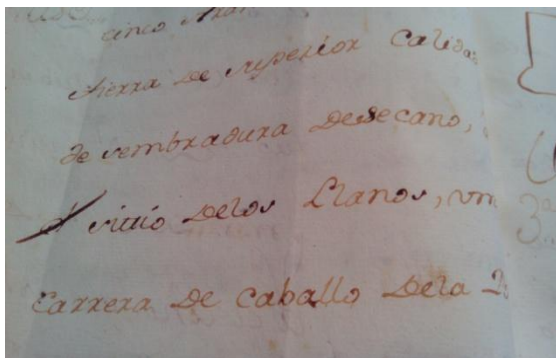 cinco
tierra de superior calidad
de sembradura desecano,
sitio delos Llanos, un
Carrera de caballo dela
3ª